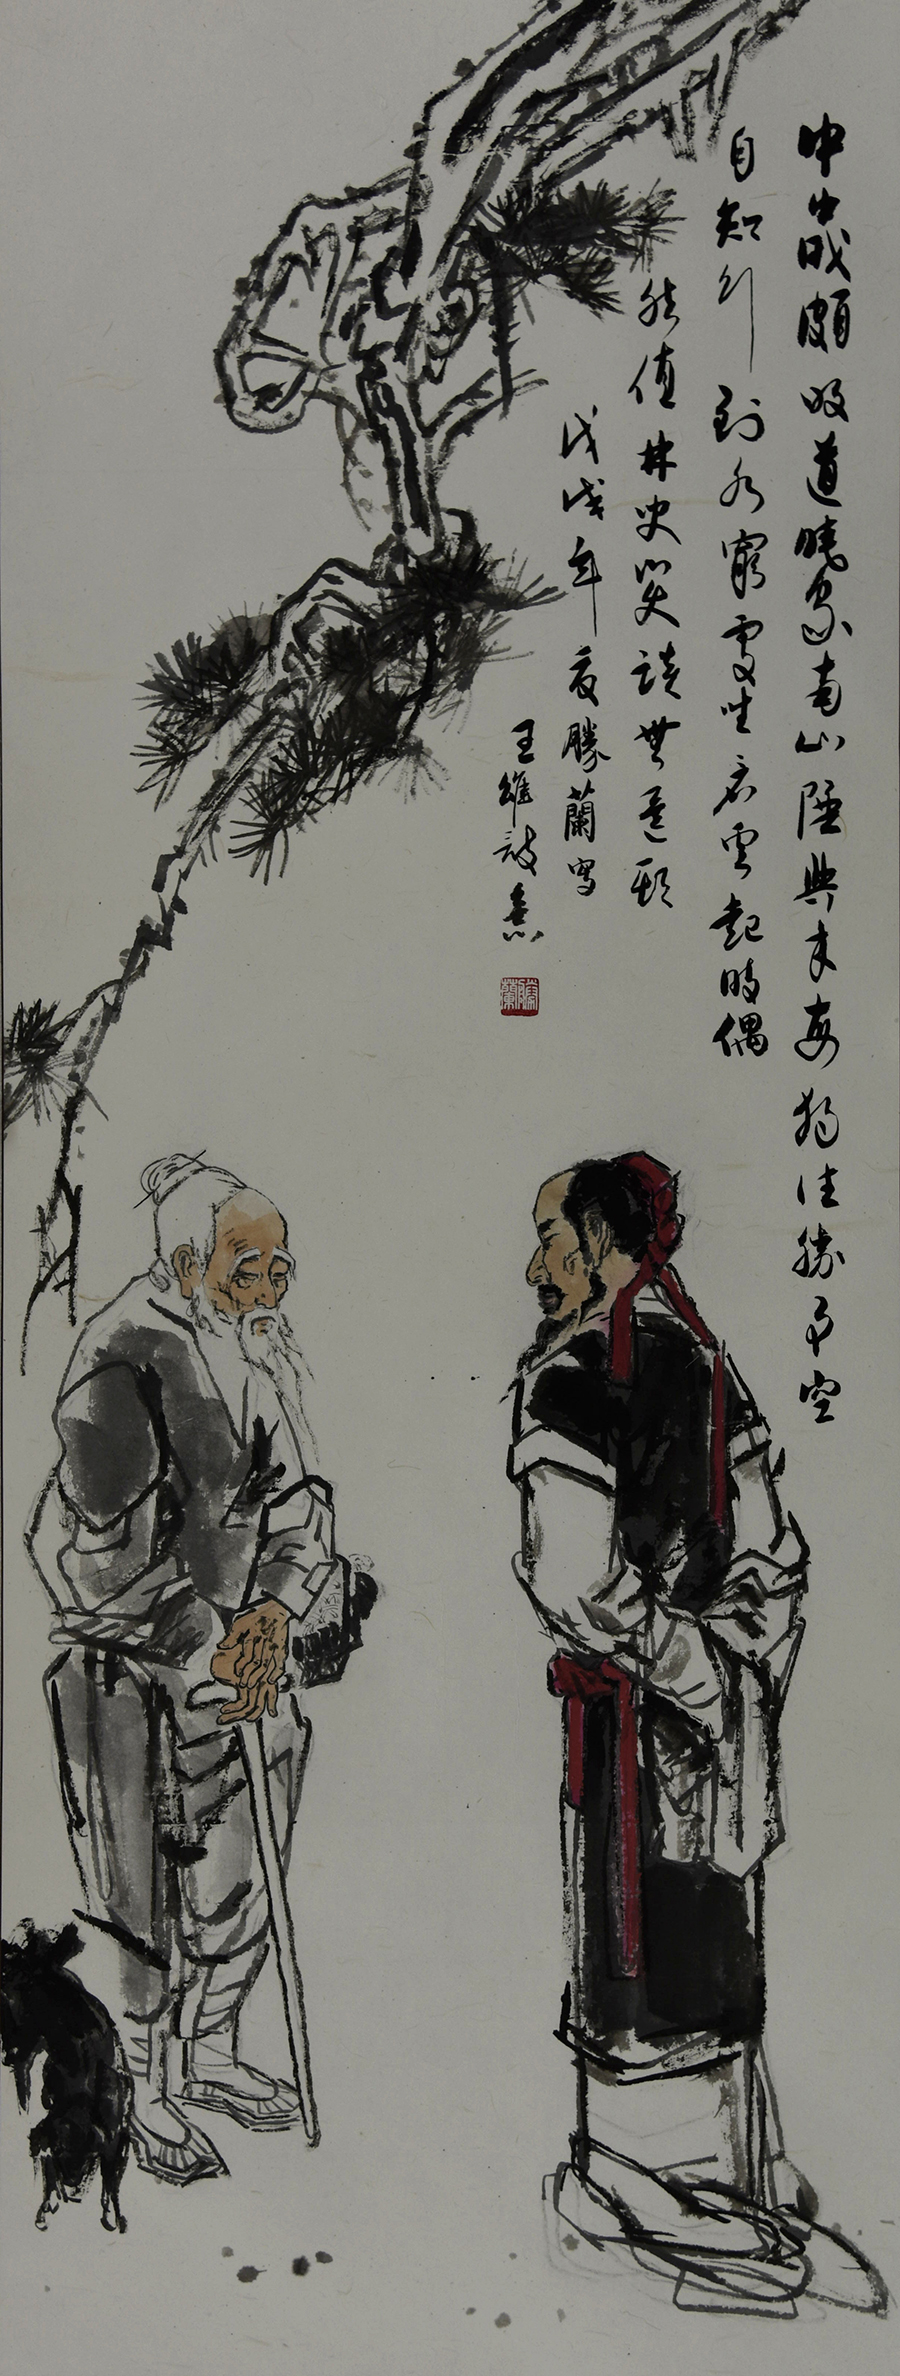 中歲頗好道晚家南山陲興来每獨往勝事空
自知行到水窮處坐看雲起時偶
然值林叟笑談無還期
戊戌年夏勝蘭寫
王維詩意
勝蘭